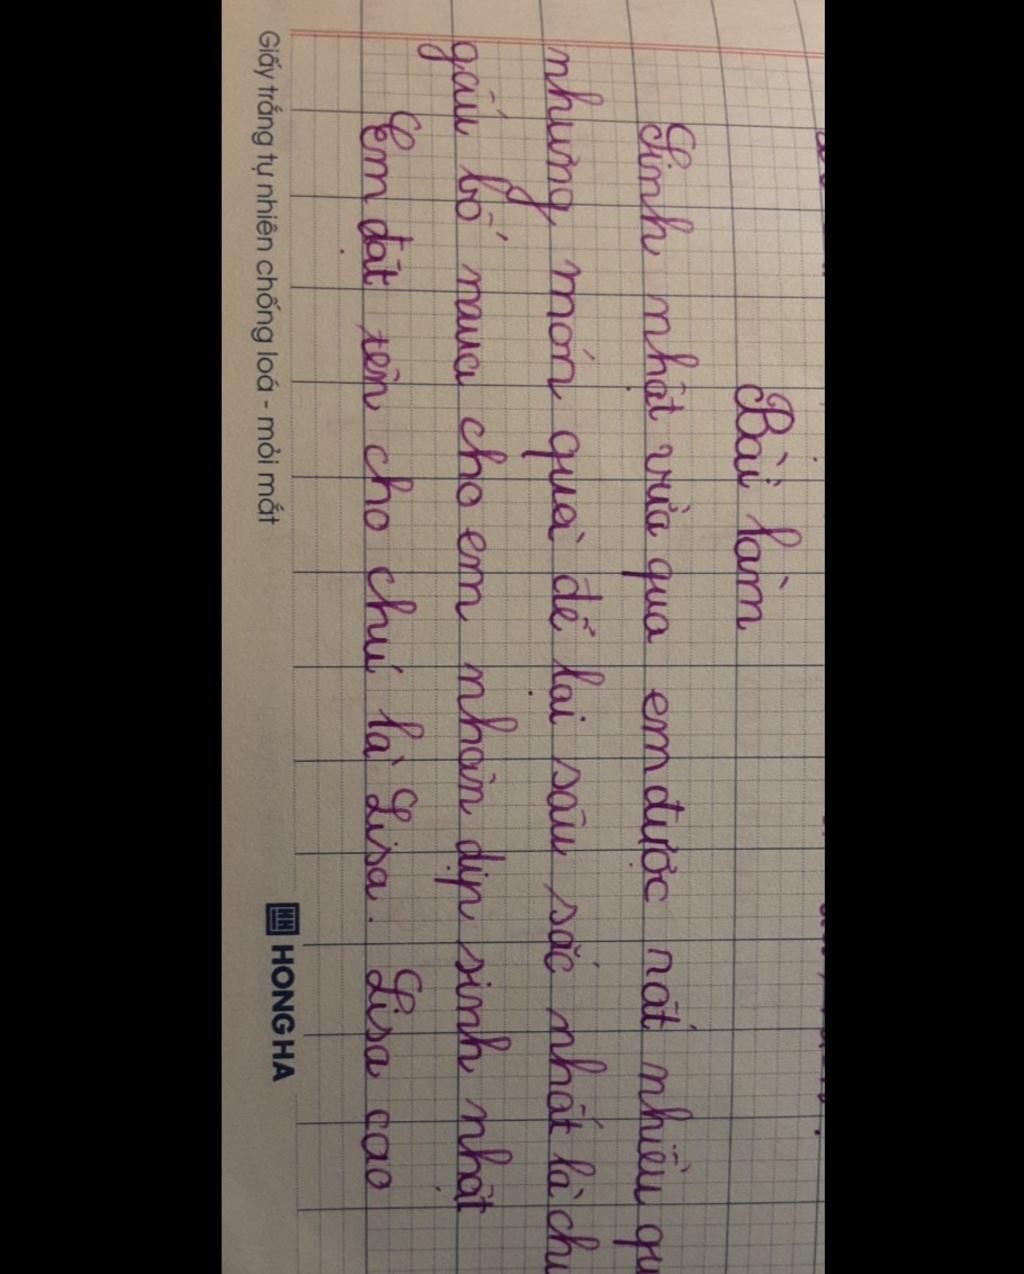 Bài làm
Sinh nhật vừa qua em được nất nhiều qu
nhưng món quà để lại sâu sắc nhất là chu
gấu bố maua cho em nhân dịp sinh nhật
Em đặt tên cho chú là Lisa. Lisa cao
Giấy trắng tự nhiên chống loá - mỏi mắt
HH HONG HA